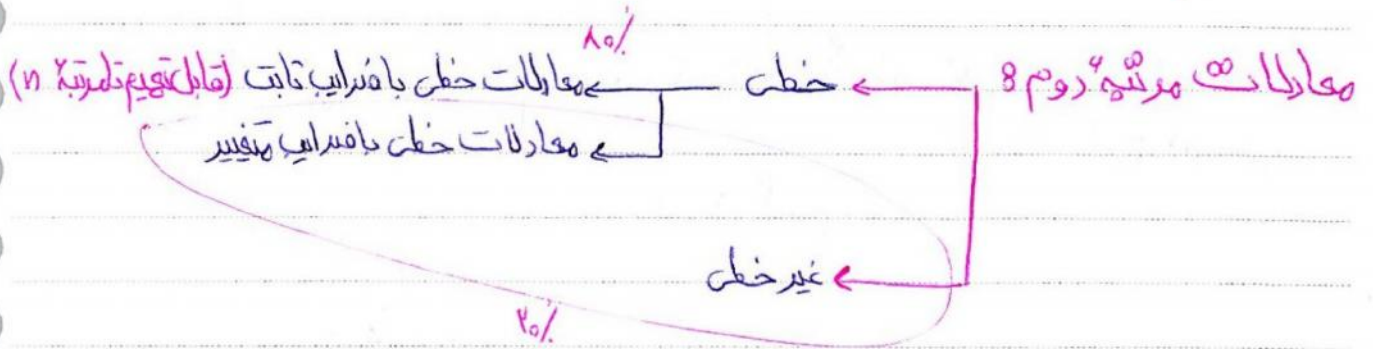 ۸۰٪
معادلات مرتبهٔ دوم : خطی معادلات خطی با ضرایب ثابت (قابل تعمیم تا مرتبهٔ n)
معادلات خطی با ضرایب متغییر
غیر خطی
۲۰٪